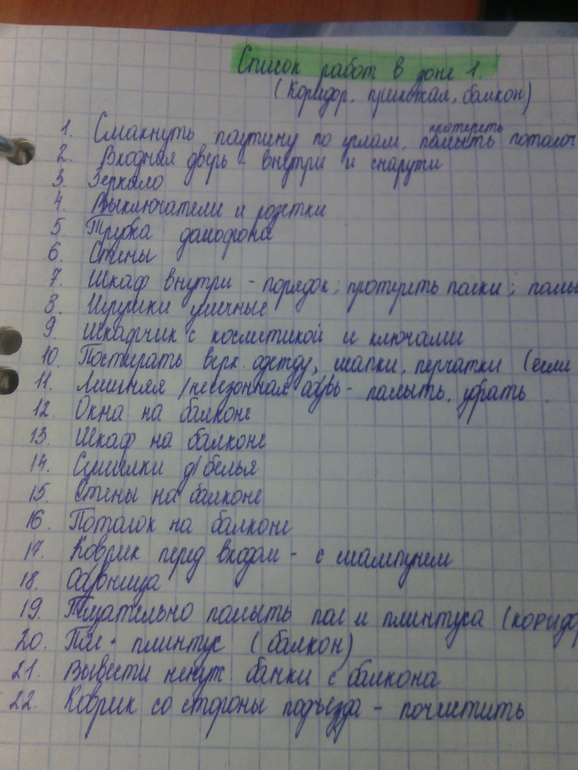 Список работ в зоне 1.
(Коридор, прихожая, балкон)
1. Смахнуть паутину по углам, протереть помыть потолоч
2. Входная дверь внутри и снаружи
3. Зеркало
4. Выключатели и розетки
5. Трубка домофона
6. Стены
7. Шкаф внутри - порядок; протереть полки; помы
8. Игрушки уличные
9. Шкафчик с косметикой и ключами
10. Постирать верх. одежду, шапки, перчатки (если
11. Лишняя/несезонная обувь - помыть, убрать.
12. Окна на балконе
13. Шкаф на балконе
14. Сушилки д/белья
15. Стены на балконе
16. Потолок на балконе
17. Коврик перед входом - с шампунем
18. Обувница
19. Тщательно помыть пол и плинтуса (коридо
20. Пол + плинтус (балкон)
21. Вывезти ненуж. банки с балкона
22. Коврик со стороны подъезда - почистить